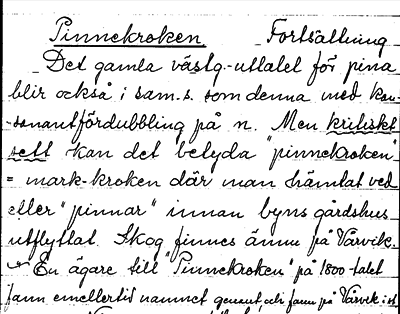 Pinnekroken Fortsättning
Det gamla västg-uttalet för pina
blir också i sam.s. som denna med kon-
-sonantfördubbling på n. Men kritiskt
sett kan det betyda "pinnekroken"
= mark-kroken där man hämtat ved
eller "pinnar" innan byns gårdshus
utflyttat. Skog finnes ännu på Värvik.
En ägare till "Pinnekroken" på 1800-talet
fann emellertid namnet och på Värvik